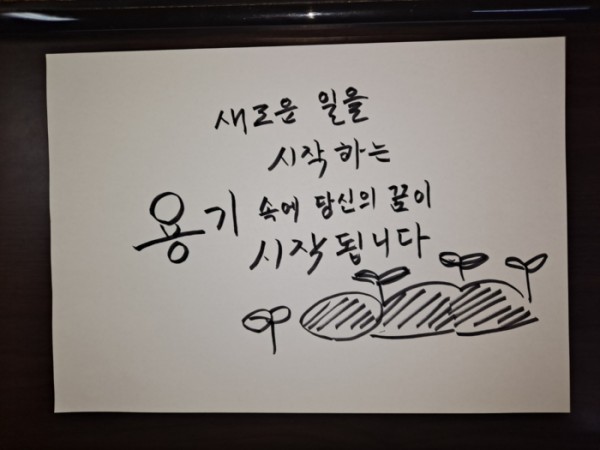 새로운 일을
시작하는
용기 속에 당신의 꿈이
시작됩니다